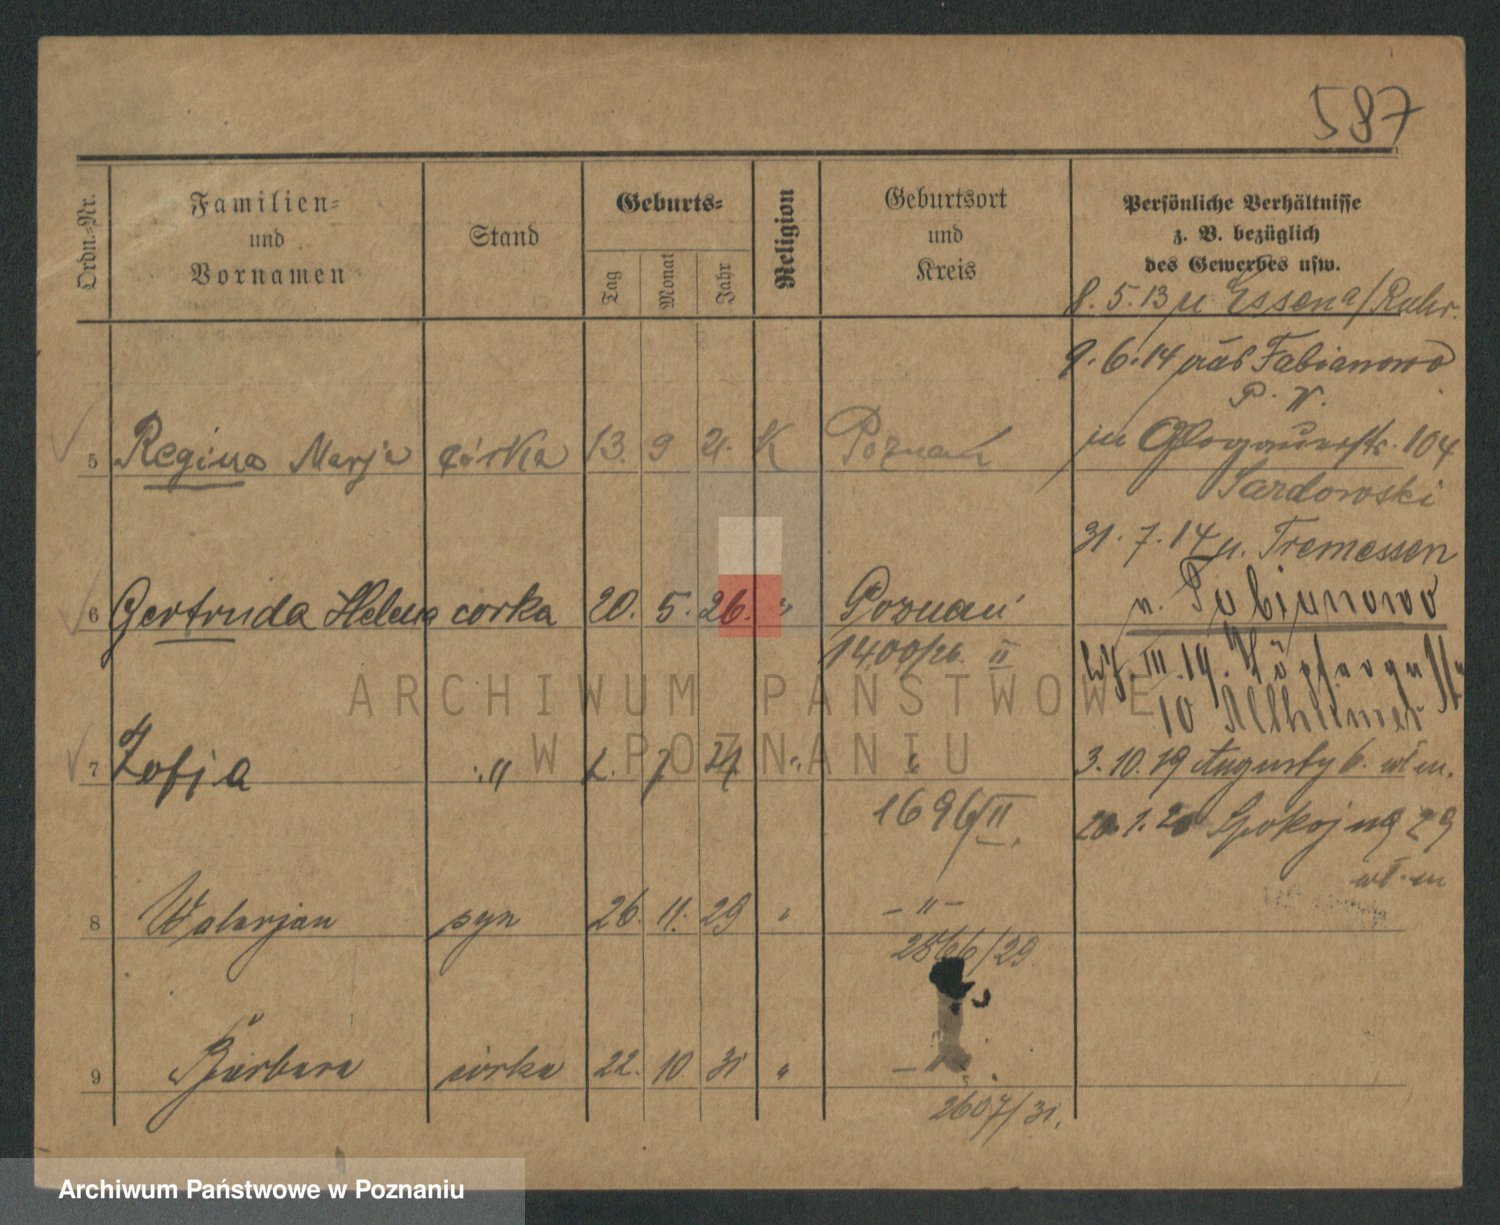 587
Ordn.-Nr.
Familien-
und
Vornamen
Stand
Geburts-
Tag
Monat
Jahr
Religion
Geburtsort
und
Kreis
Persönliche Verhältnisse
z. B. bezüglich
des Gewerbes usw.
8. 5. 13 u. Essen a/Ruhr.
9. 6. 14 Fabianowo
P. W.
5 Regina Marja córka 13. 9 21. K Poznań
in Glogauerstr. 104
Sardowski
31. 7. 14 u. Tremessen
6 Gertruda Helena corka 20. 5. 26. " Poznań
n. Fabianowo
1400/26. II
10
ARCHIWUM PAŃSTWOWE
W POZNANIU
7 Zofja " 7 " "
3. 10. 19 Augusty 6.
1696/II
20. 1. 20 Spokojna 29
8 Walerjan syn 26. 11. 29 " – " –
2566/29
9 Barbara córka 22. 10. 31 "
2607/31.
Archiwum Państwowe w Poznaniu